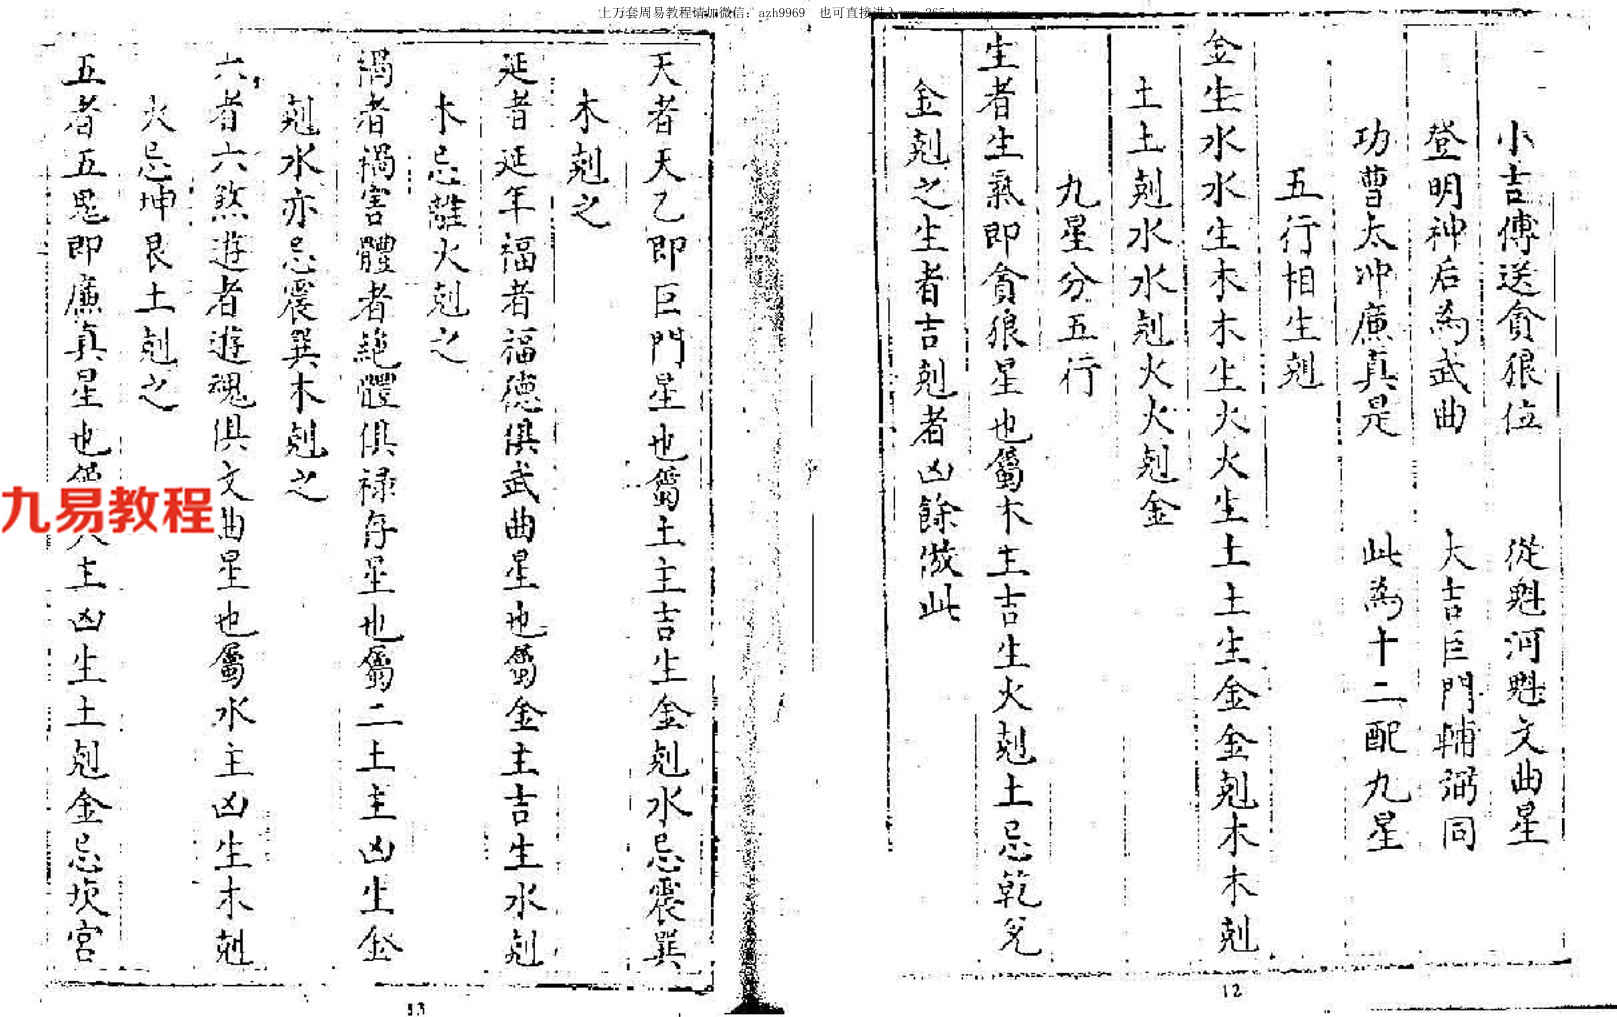 上万套周易教程请加微信：azh9969 也可直接进入www.365zhouyi.com
小吉傳送貪狼位 從魁河魁文曲星
登明神后為武曲 大吉巨門輔弼同
功曹太冲廉真是 此為十二配九星
五行相生剋
金生水水生木木生火火生土土生金金剋木木剋
土土剋水水剋火火剋金
九星分五行
生者生氣即貪狼星也屬木主吉生火剋土忌乾兌
金剋之生者吉剋者凶餘倣此
12
天者天乙即巨門星也屬土主吉生金剋水忌震巽
木剋之
延者延年福者福德俱武曲星也屬金主吉生水剋
木忌離火剋之
禍者禍害體者絶體俱禄存星也屬二土主凶生金
剋水亦忌震巽木剋之
六者六煞遊者遊魂俱文曲星也屬水主凶生木剋
火忌坤艮土剋之
五者五鬼即廉真星也屬火主凶生土剋金忌坎宮
13
九易教程